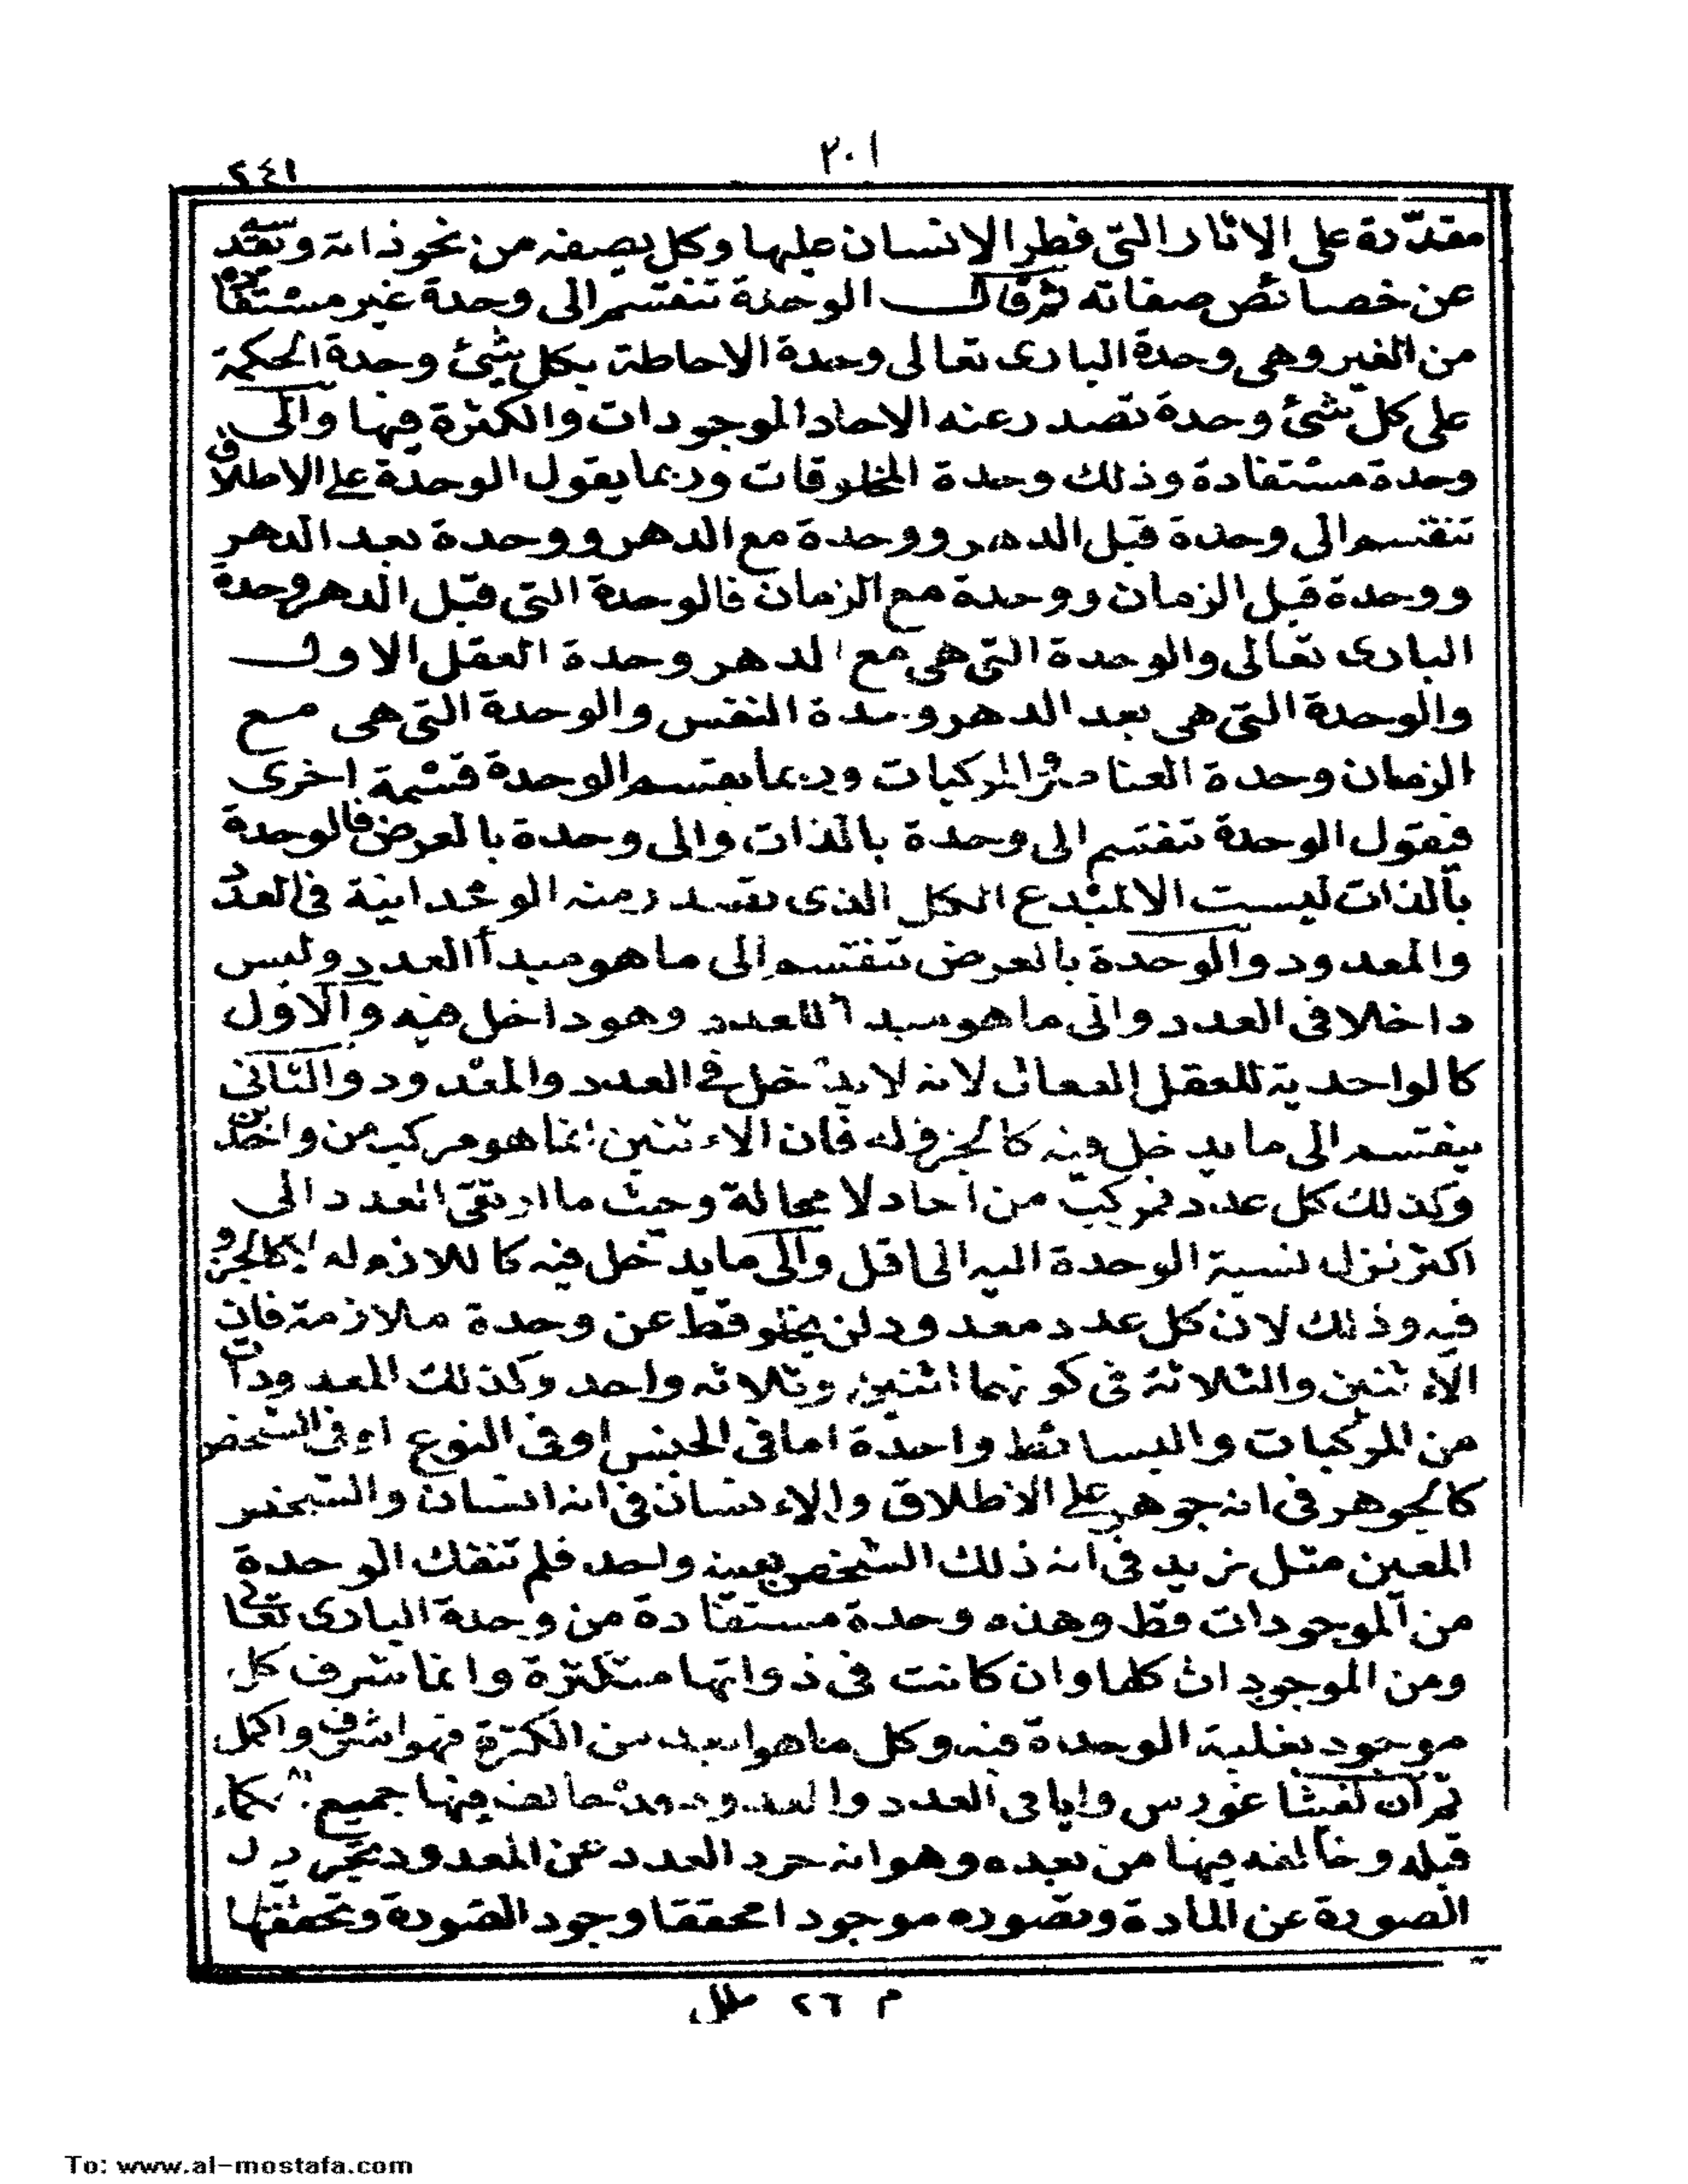 ٢٠١
٢٤١
مقدّرة على الاثار التى فطر الانسان عليها وكل يصفه من نحو ذاته وتقدسه
عن خصائص صفاته ثم قال الوحدة تنقسم الى وحدة غير مستفادة
من الغير وهى وحدة البارى تعالى وحدة الاحاطة بكل شئ وحدة الحكمة
على كل شئ وحدة تصدر عنه الاحاد الموجودات والكثرة فيها والى
وحدة مستفادة وذلك وحدة المخلوقات وربما يقول الوحدة على الاطلاق
تنقسم الى وحدة قبل الدهر ووحدة مع الدهر ووحدة بعد الدهر
ووحدة قبل الزمان ووحدة مع الزمان فالوحدة التى قبل الدهر وحدة
البارى تعالى والوحدة التى هى مع الدهر وحدة العقل الاول
والوحدة التى هى بعد الدهر وحدة النفس والوحدة التى هى مع
الزمان وحدة العناصر والمركبات وربما يقسم الوحدة قسمة اخرى
فيقول الوحدة تنقسم الى وحدة بالذات والى وحدة بالعرض فالوحدة
بالذات ليست الا لمبدع الكل الذى تصدر منه الوحدانية فى العدد
والمعدود والوحدة بالعرض تنقسم الى ما هو مبدأ العدد وليس
داخلا فى العدد والى ما هو مبدأ للعدد وهو داخل فيه والاول
كالواحدية للعقل الفعال لانه لا يدخل فى العدد والمعدود والثانى
ينقسم الى ما يدخل فيه كالجزو له فان الاءثنين انما هو مركب من واحدين
وكذلك كل عدد فمركب من احاد لا محالة وحيث ما ارتقى العدد الى
اكثر نزل نسبة الوحدة اليه الى اقل والى ما يدخل فيه كاللازم له لا كالجزو
فيه وذلك لان كل عدد معدود لن يخلو قط عن وحدة ملازمة فان
الاءثنين والثلاثة فى كونهما اثنين وثلاثه واحد وكذلك المعدودات
من المركبات والبسائط واحدة اما فى الجنس او فى النوع او فى الشخص
كالجوهر فى انه جوهر على الاطلاق والاءنسان فى انه انسان والشخص
المعين مثل زيد فى انه ذلك الشخص بعينه واحد فلم تنفك الوحدة
من الموجودات قط وهذه وحدة مستفادة من وحدة البارى تعالى
ومن الموجودات كلها وان كانت فى ذواتها متكثرة وانما شرف كل
موجود بغلبة الوحدة فيه وكل ما هو ابعد من الكثرة فهو اشرف واكمل
ثم ان لفيثاغورس رايا فى العدد والمعدود قد خالف فيها جميع الحكماء
قبله وخالفه فيها من بعده وهو انه جرد العدد عن المعدود تجريد
الصورة عن المادة وتصوره موجودا محققا وجود الصورة وتحققها
م ٢٦ ملل
To: www.al-mostafa.com